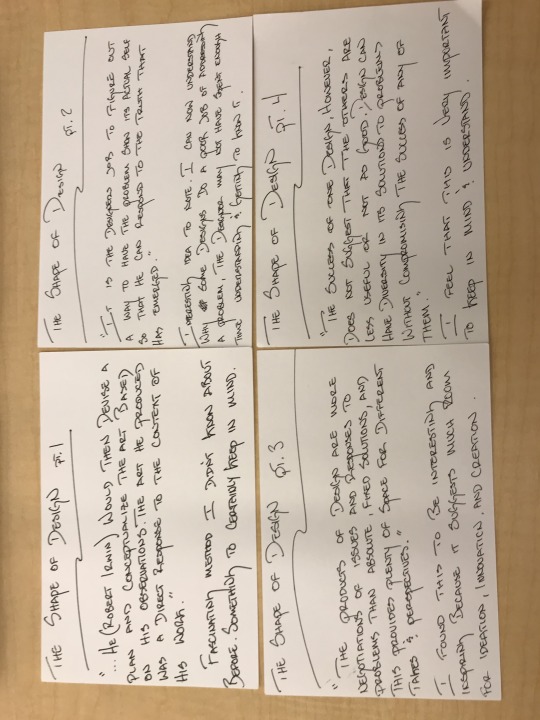 The Shape of Design pt. 1
"... He (Robert Irwin) would then devise a
plan and conceptualize the art based
on his observations. The art he produced
was a direct response to the content of
his work."
Fascinating method I didn't know about
before. Something to certainly keep in mind.
The Shape of Design pt. 2
"It is the designers job to figure out
a way to have the problem show its actual self
so that he can respond to the truth that
has emerged."
Interesting idea to note. I can now understand
why some designs do a poor job of addressing
a problem, the designer may not have spent enough
time understanding & getting to know it.
The Shape of Design pt. 3
"The products of design are more
negotiations of issues and responses to
problems than absolute, fixed solutions, and
this provides plenty of space for different
takes & perspectives."
I found this to be interesting and
inspiring because it suggests much room
for ideation, innovation and creation.
The Shape of Design pt. 4
"The success of one design, however,
does not suggest that the others are
less useful or not as good. Design can
have diversity in its solutions to problems
without compromising the success of any of
them."
I feel that this is very important
to keep in mind & understand.